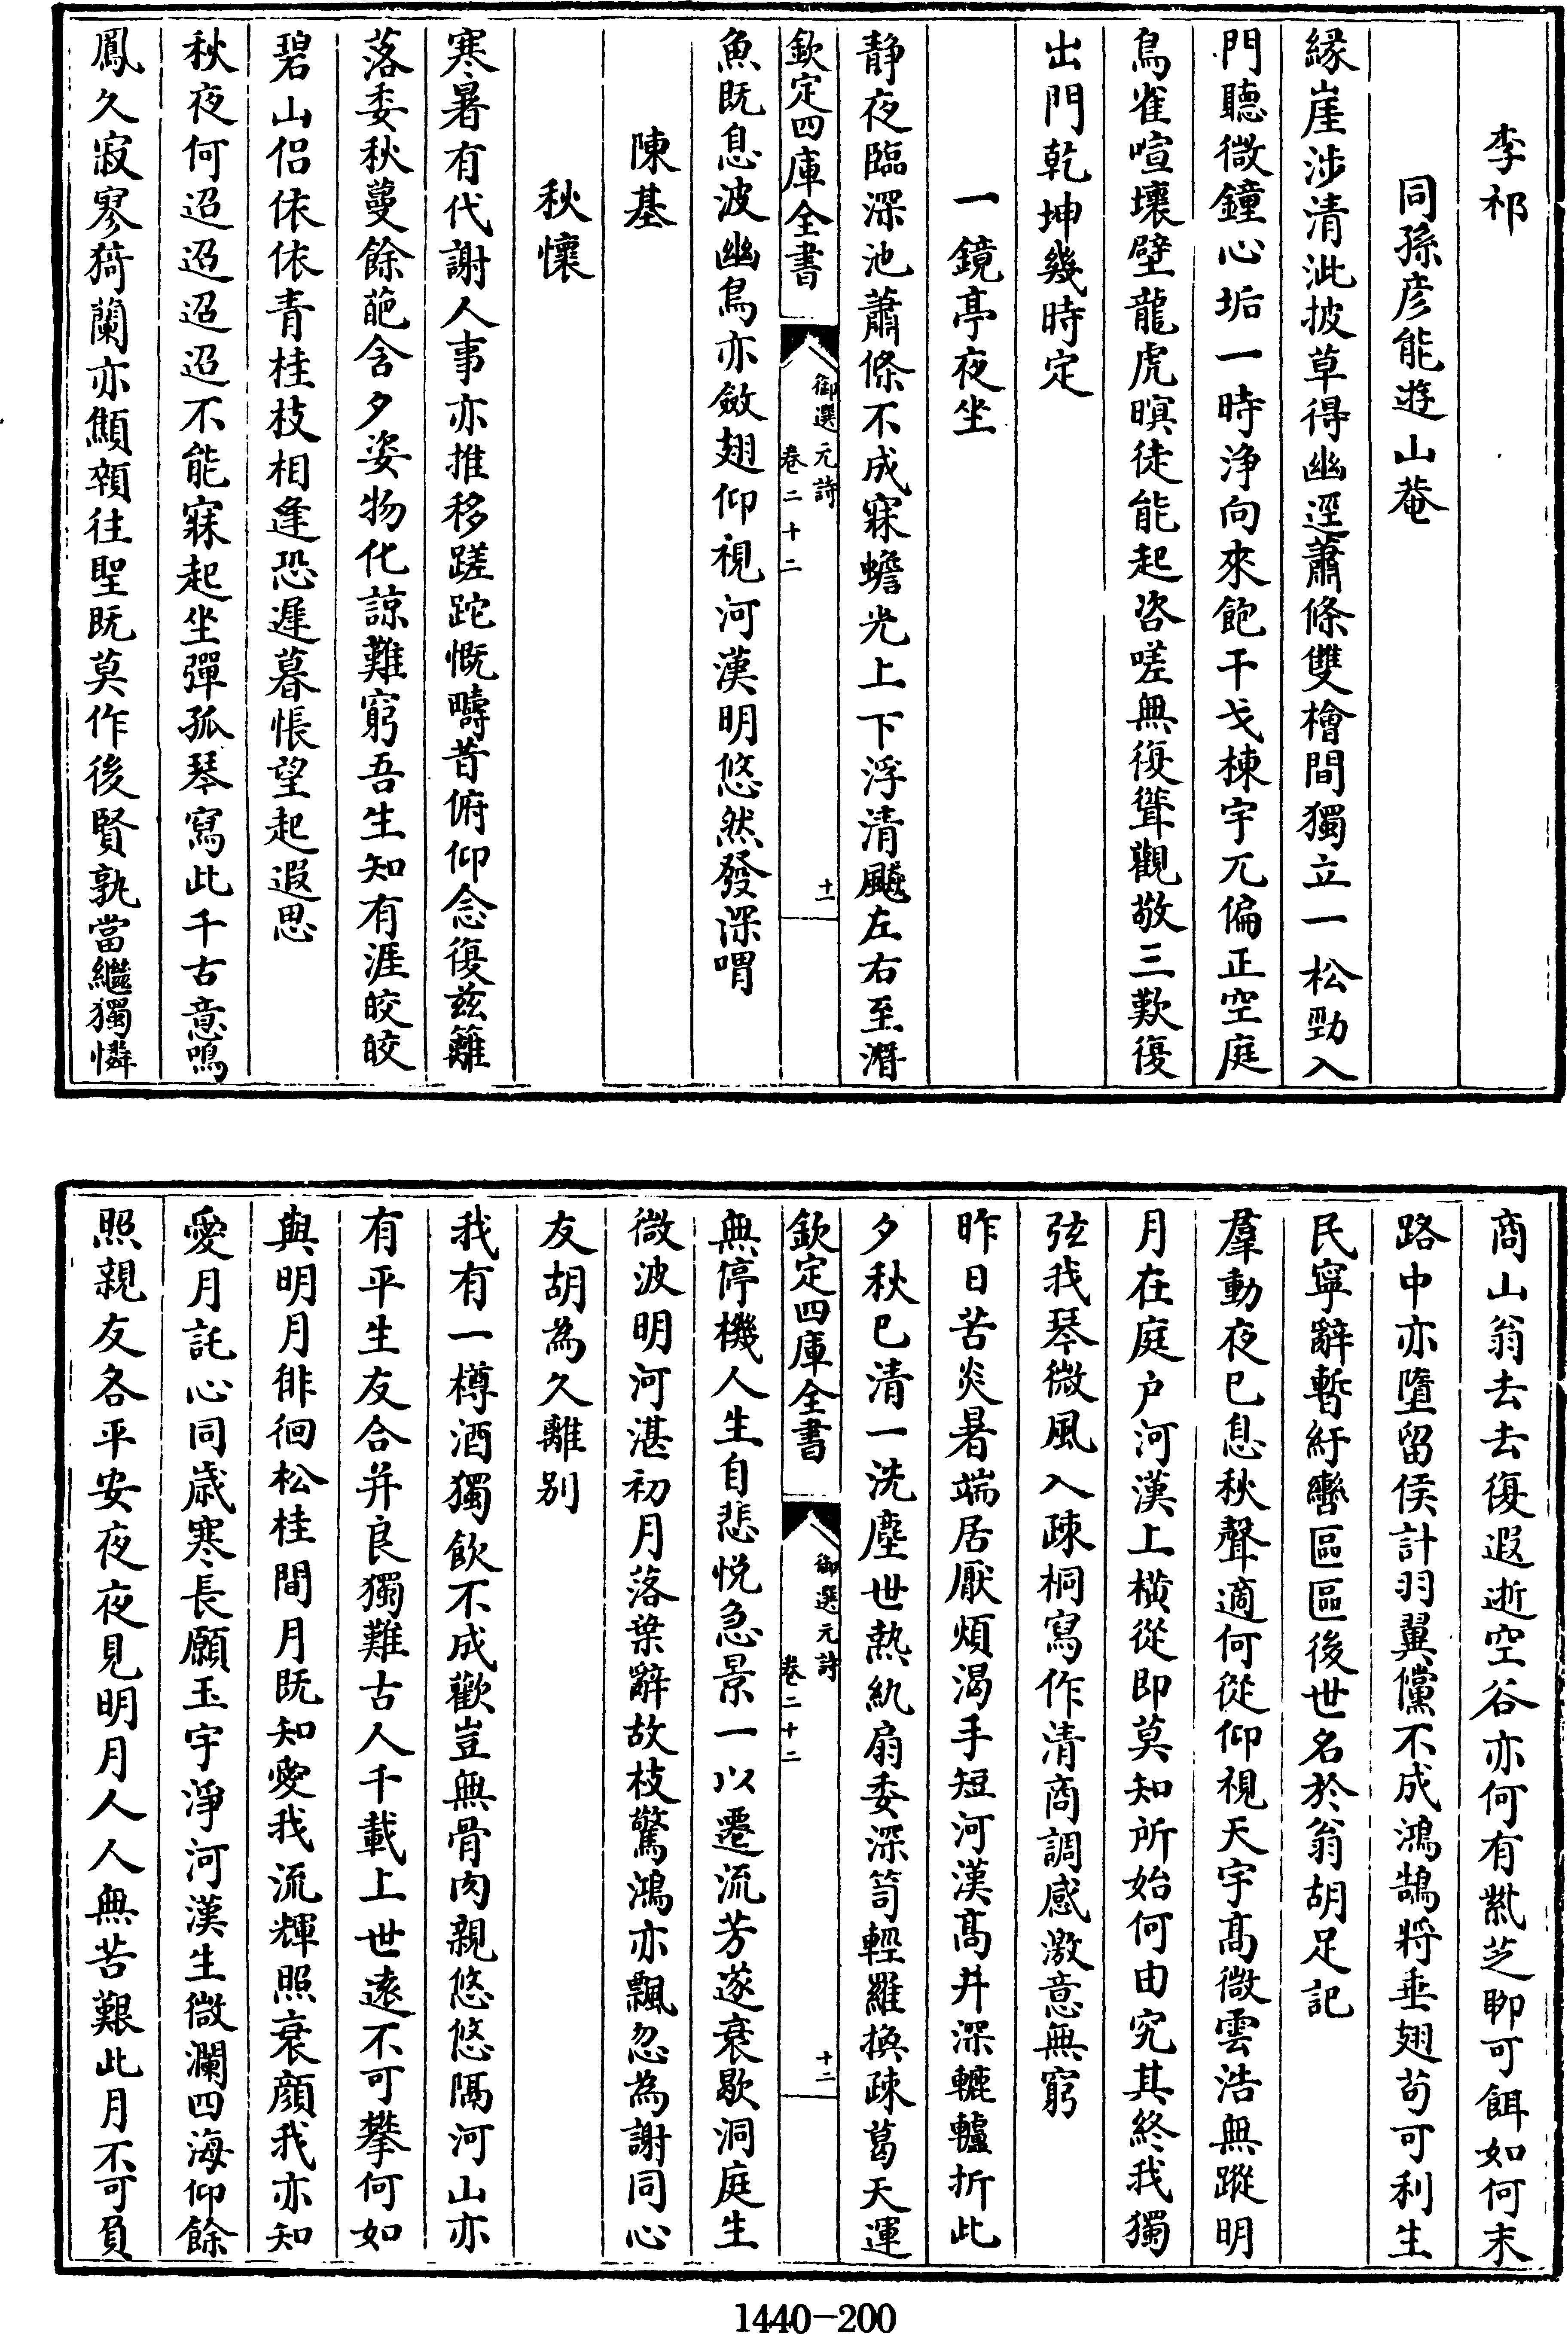 李祁
同孫彦能遊山菴
緣崖涉清泚披草得幽逕蕭條雙檜間獨立一松勁入
門聽微鐘心垢一時浄向來飽干戈棟宇兀偏正空庭
鳥雀喧壊壁龍虎暝徒能起咨嗟無復聳觀敬三歎復
出門乾坤幾時定
一鏡亭夜坐
静夜臨深池蕭條不成寐蟾光上下浮清飇左右至潛
欽定四庫全書
御選元詩
卷二十二
十一
魚既息波幽鳥亦斂翅仰視河漢明悠然發深喟
陳基
秋懷
寒暑有代謝人事亦推移蹉跎慨疇昔俯仰念復兹籬
落委秋蔓餘葩含夕姿物化諒難窮吾生知有涯皎皎
碧山侣依依青桂枝相逢恐遲暮悵望起遐思
秋夜何迢迢迢迢不能寐起坐彈孤琴寫此千古意鳴
鳳久寂寥猗蘭亦顦顇往聖既莫作後賢孰當繼獨憐
商山翁去去復遐逝空谷亦何有紫芝聊可餌如何末
路中亦墮留侯計羽翼儻不成鴻鵠將垂翅苟可利生
民寧辭暫紆轡區區後世名於翁胡足記
羣動夜已息秋聲適何從仰視天宇髙微雲浩無蹤明
月在庭户河漢上横從即莫知所始何由究其終我獨
弦我琴微風入疎桐寫作清商調感激意無窮
昨日苦炎暑端居厭煩渴手短河漢髙井深轆轤折此
夕秋已清一洗塵世熱紈扇委深笥輕羅換疎葛天運
欽定四庫全書
御選元詩
卷二十二
十二
無停機人生自悲悦急景一以遷流芳遂衰歇洞庭生
微波明河湛初月落葉辭故枝驚鴻亦飄忽為謝同心
友胡為久離别
我有一樽酒獨飲不成歡豈無骨肉親悠悠隔河山亦
有平生友合并良獨難古人千載上世遠不可攀何如
與明月徘徊松桂間月既知愛我流輝照衰顔我亦知
愛月託心同歲寒長願玉宇浄河漢生微瀾四海仰餘
照親友各平安夜夜見明月人人無苦艱此月不可負
1440-200